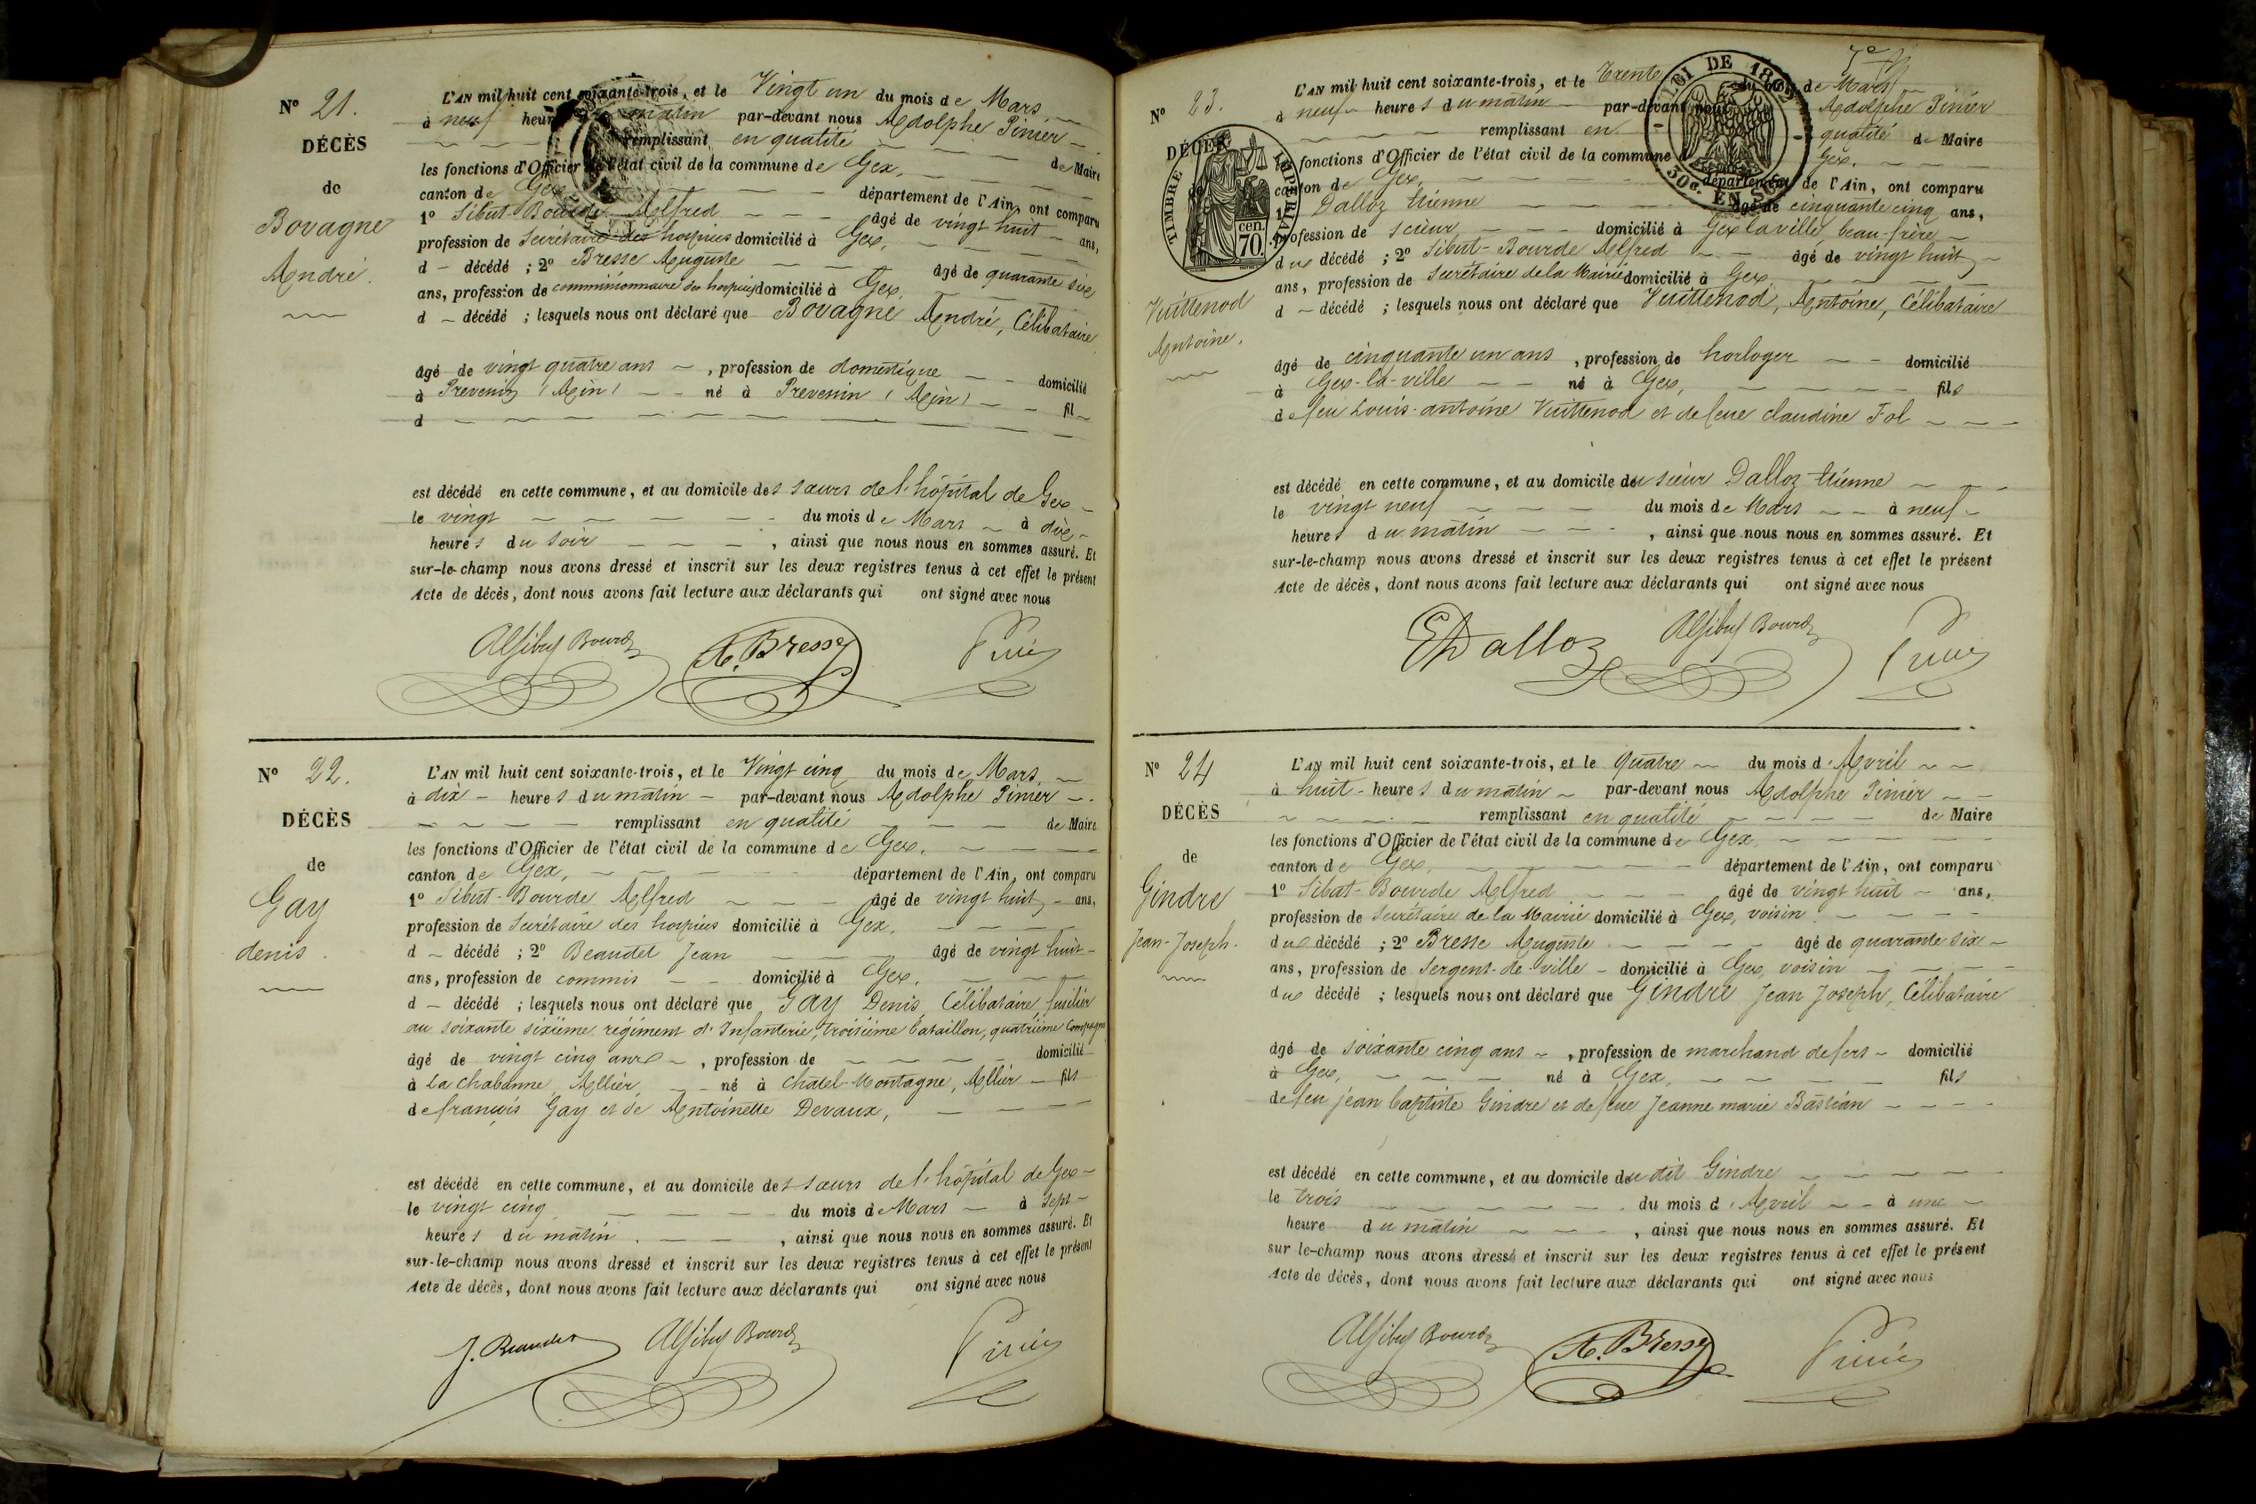 N° 21.
DÉCÈS
de
Bovagne
André.
L'AN mil huit cent soixante-trois, et le Vingt un du mois de Mars
à neuf heures du matin par-devant nous Adolphe Pinier
remplissant en qualité de Maire
les fonctions d'Officier de l'état civil de la commune de Gex,
canton de Gex département de l'Ain, ont comparu
1° Sibut-Bourde Alfred âgé de vingt huit ans,
profession de Secrétaire des hospices domicilié à Gex,
d décédé ; 2° Bresse Auguste âgé de quarante six
ans, profession de commissionnaire des hospices domicilié à Gex,
d décédé ; lesquels nous ont déclaré que Bovagne André, Célibataire
âgé de vingt quatre ans , profession de domestique domicilié
à Prevenin (Ain) né à Prevenin (Ain) fil
d
est décédé en cette commune, et au domicile des sœurs de l'hôpital de Gex
le vingt du mois de Mars à dix
heures du soir , ainsi que nous nous en sommes assuré. Et
sur-le-champ nous avons dressé et inscrit sur les deux registres tenus à cet effet le présent
Acte de décès, dont nous avons fait lecture aux déclarants qui ont signé avec nous
Alf Sibut Bourde A. Bresse Pinier
N° 22.
DÉCÈS
de
Gay
denis.
L'AN mil huit cent soixante-trois, et le Vingt cinq du mois de Mars
à dix heures du matin par-devant nous Adolphe Pinier
remplissant en qualité de Maire
les fonctions d'Officier de l'état civil de la commune de Gex.
canton de Gex, département de l'Ain, ont comparu
1° Sibut-Bourde Alfred âgé de vingt huit ans,
profession de Secrétaire des hospices domicilié à Gex,
d décédé ; 2° Beaudet Jean âgé de vingt huit
ans, profession de commis domicilié à Gex,
d décédé ; lesquels nous ont déclaré que Gay Denis, Célibataire, fusilier
au soixante sixième régiment d'Infanterie, troisième bataillon, quatrième Compagnie
âgé de vingt cinq ans , profession de domicilié
à La chabanne, Allier né à Chatel-Montagne, Allier fils
de françois Gay et de Antoinette Devaux,
est décédé en cette commune, et au domicile des sœurs de l'hôpital de Gex
le vingt cinq du mois de Mars à sept
heures du matin , ainsi que nous nous en sommes assuré. Et
sur-le-champ nous avons dressé et inscrit sur les deux registres tenus à cet effet le présent
Acte de décès, dont nous avons fait lecture aux déclarants qui ont signé avec nous
J. Beaudet Alf Sibut Bourde Pinier
N° 23.
DÉCÈS
TIMBRE IMPÉRIAL
70 cen.
LOI DE 1862
30c. EN SUS
Vuittenod
Antoine.
L'AN mil huit cent soixante-trois, et le Trente du mois de Mars
à neuf heures du matin par-devant nous Adolphe Pinier
remplissant en qualité de Maire
les fonctions d'Officier de l'état civil de la commune de Gex.
canton de Gex, département de l'Ain, ont comparu
1° Dalloz Etienne âgé de cinquante cinq ans,
profession de scieur domicilié à Gex la ville, beau-frère
du décédé ; 2° Sibut-Bourde Alfred âgé de vingt huit
ans, profession de Secrétaire de la Mairie domicilié à Gex,
d décédé ; lesquels nous ont déclaré que Vuittenod, Antoine, Célibataire
âgé de cinquante un ans , profession de horloger domicilié
à Gex-la-ville né à Gex, fils
de feu Louis-antoine Vuittenod et de feue claudine Fol
est décédé en cette commune, et au domicile du sieur Dalloz Etienne
le vingt neuf du mois de Mars à neuf
heures du matin , ainsi que nous nous en sommes assuré. Et
sur-le-champ nous avons dressé et inscrit sur les deux registres tenus à cet effet le présent
Acte de décès, dont nous avons fait lecture aux déclarants qui ont signé avec nous
E Dalloz Alf Sibut Bourde Pinier
N° 24
DÉCÈS
de
Gindre
Jean-Joseph.
L'AN mil huit cent soixante-trois, et le quatre du mois d'Avril
à huit heures du matin par-devant nous Adolphe Pinier
remplissant en qualité de Maire
les fonctions d'Officier de l'état civil de la commune de Gex
canton de Gex, département de l'Ain, ont comparu
1° Sibut-Bourde Alfred âgé de vingt huit ans,
profession de Secrétaire de la Mairie domicilié à Gex, voisin
du décédé ; 2° Bresse Auguste âgé de quarante six
ans, profession de Sergent-de-ville domicilié à Gex, voisin
du décédé ; lesquels nous ont déclaré que Gindre Jean Joseph, Célibataire
âgé de soixante cinq ans , profession de marchand de fers domicilié
à Gex, né à Gex, fils
de feu jean baptiste Gindre et de feue Jeanne marie Bastian
est décédé en cette commune, et au domicile du dit Gindre
le trois du mois d'Avril à une
heure du matin , ainsi que nous nous en sommes assuré. Et
sur le-champ nous avons dressé et inscrit sur les deux registres tenus à cet effet le présent
Acte de décès, dont nous avons fait lecture aux déclarants qui ont signé avec nous
Alf Sibut Bourde A. Bresse Pinier